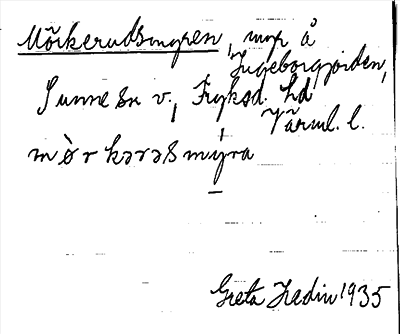 Mörkerudsmyren, myr å
Ingeborgjorden,
Sunne sn v., Fryksd. hd
Värml. l.
mòrkərəsmýra
Greta Hedin 1935